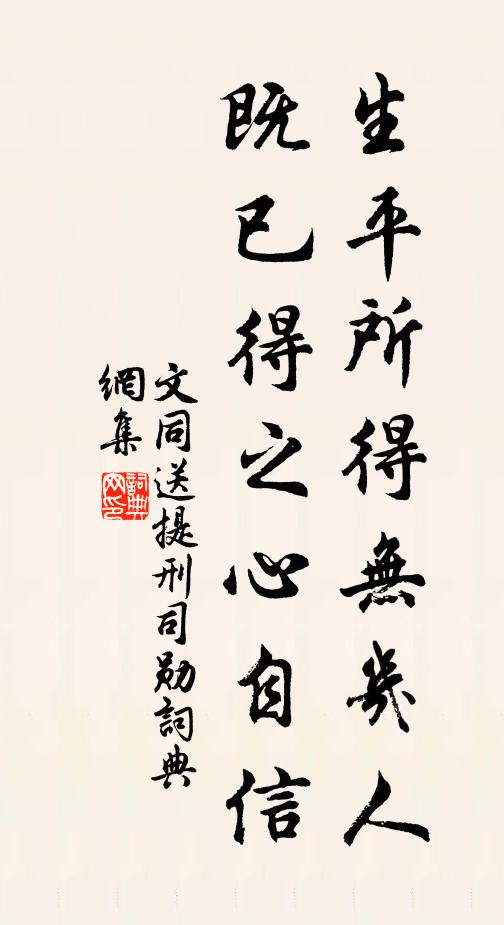 生平所得無幾人
既已得之心自信
文同送提刑司勋詞典
網集
詞典
网印